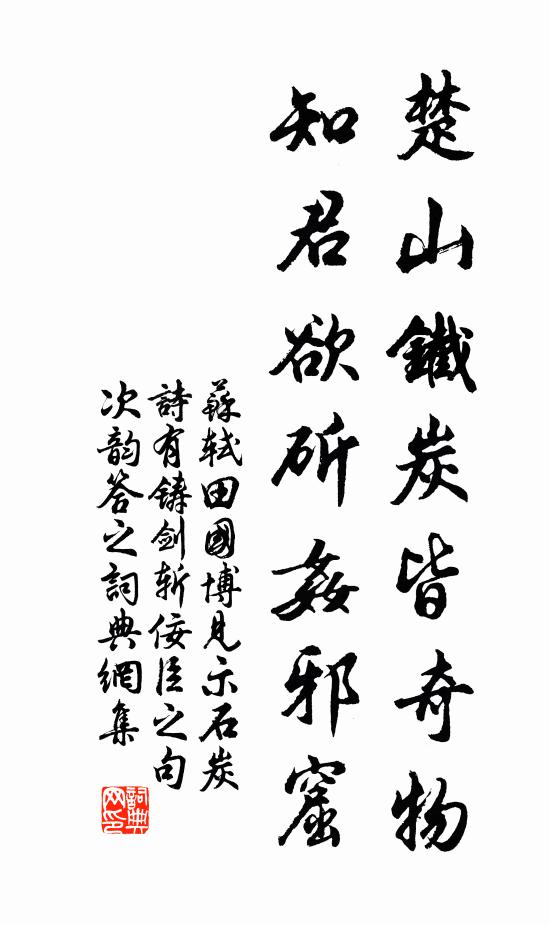 楚山鐵炭皆奇物
知君欲斫姦邪窟
蘇軾田國博見示石炭
詩有鑄劍斬佞臣之句
次韵答之詞典網集
詞典
网印